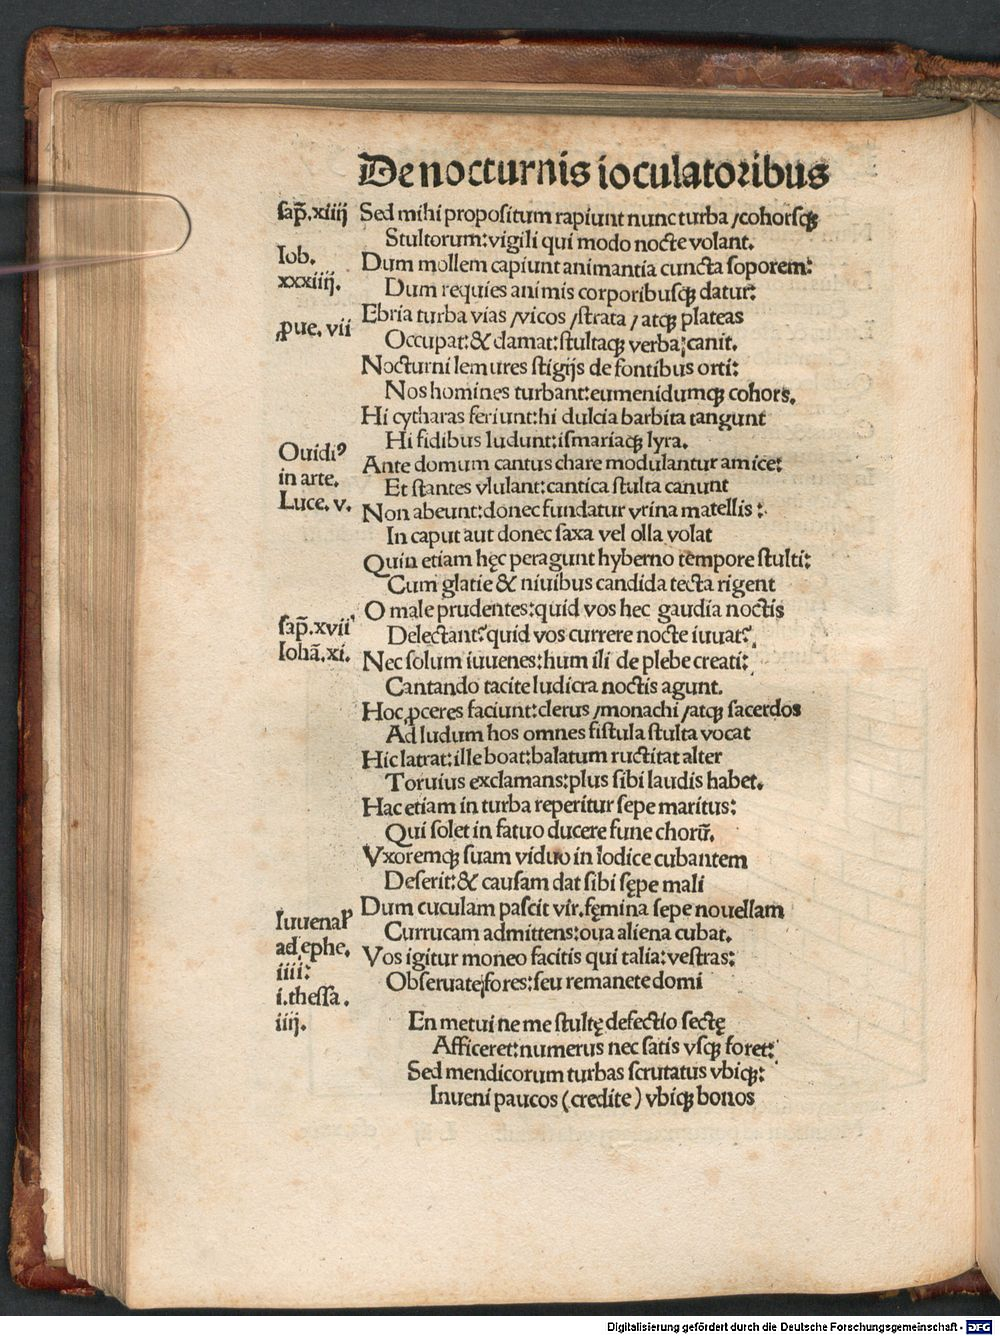 De nocturnis ioculatoribus
sap̃.xiiij
Sed mihi propositum rapiunt nunc turba / cohorsꝗ
Stultorum: vigili qui modo nocte volant.
Iob.
xxxiiij.
Dum mollem capiunt animantia cuncta soporem:
Dum requies animis corporibusꝗ datur:
ꝓue. vii
Ebria turba vias / vicos / strata / atꝗ plateas
Occupat: & clamat: stultaꝗ verba canit.
Nocturni lemures stigijs de fontibus orti:
Nos homines turbant: eumenidumꝗ cohors.
Hi cytharas feriunt: hi dulcia barbita tangunt
Hi fidibus ludunt: ismariaꝗ lyra.
Ouidiꝰ
in arte.
Luce. v.
Ante domum cantus chare modulantur amice:
Et stantes vlulant: cantica stulta canunt
Non abeunt: donec fundatur vrina matellis:
In caput aut donec saxa vel olla volat
Quin etiam hęc peragunt hyberno tempore stulti:
Cum glatie & niuibus candida tecta rigent
sap̃.xvii
Iohã.xi.
O male prudentes: quid vos hec gaudia noctis
Delectant? quid vos currere nocte iuuat?
Nec solum iuuenes: humili de plebe creati:
Cantando tacite ludicra noctis agunt.
Hoc ꝓceres faciunt: clerus / monachi / atꝗ sacerdos
Ad ludum hos omnes fistula stulta vocat
Hic latrat: ille boat: balatum ructitat alter
Toruius exclamans: plus sibi laudis habet.
Hac etiam in turba reperitur sepe maritus:
Qui solet in fatuo ducere fune chorũ.
Vxoremꝗ suam viduo in lodice cubantem
Deserit: & causam dat sibi sępe mali
Iuuenaľ
ad ephe.
iiii:
i.thessa.
iiij.
Dum cuculam pascit vir. fęmina sepe nouellam
Currucam admittens: oua aliena cubat.
Vos igitur moneo facitis qui talia: vestras:
Obseruate fores: seu remanete domi
En metui ne me stultę defectio sectę
Afficeret: numerus nec satis vsꝗ foret:
Sed mendicorum turbas scrutatus vbiꝗ:
Inueni paucos (credite) vbiꝗ bonos
Digitalisierung gefördert durch die Deutsche Forschungsgemeinschaft - DFG